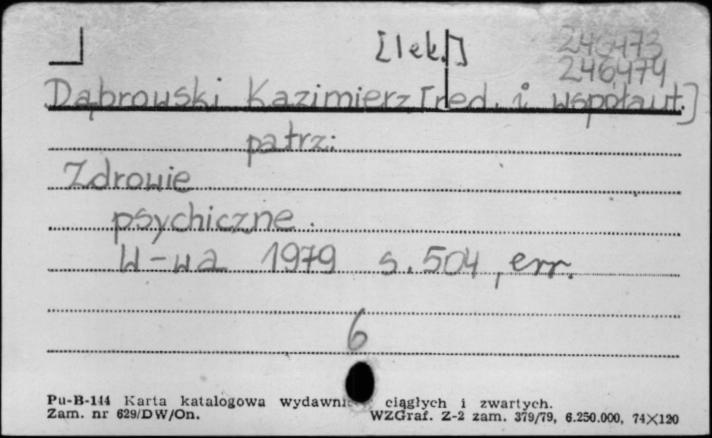 [lek.]
246473
246474
Dąbrowski Kazimierz [red. i współaut.]
patrz:
Zdrowie
psychiczne.
W-wa 1979 s. 504, err.
6
Pu-B-144 Karta katalogowa wydawni ciągłych i zwartych.
Zam. nr 629/DW/On. WZGraf. Z-2 zam. 379/79, 6.250.000, 74×120